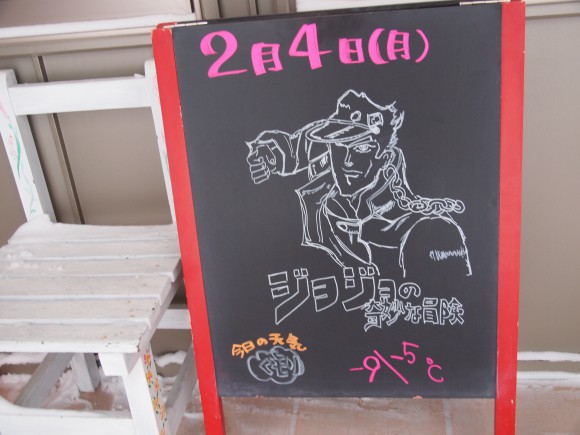 2月4日(月)
ジョジョの
奇妙な冒険
今日の天気
くもり
-9/-5℃